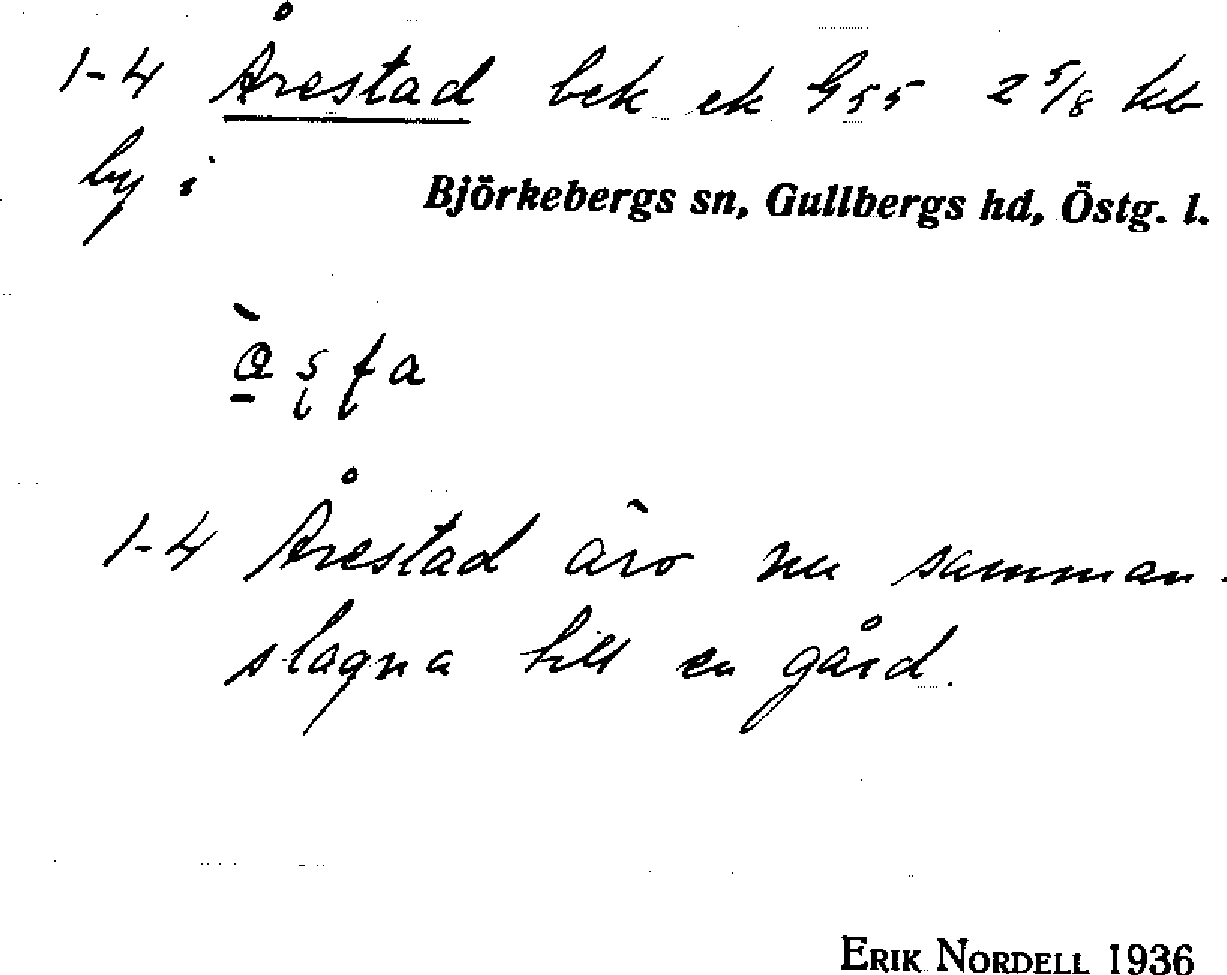 1-4 Årestad bek ek G 55 2 5/8 kb
by i Björkebergs sn, Gullbergs hd, Östg. l.
1-4 Årestad äro nu samman-
slagna till en gård.
ERIK NORDELL 1936